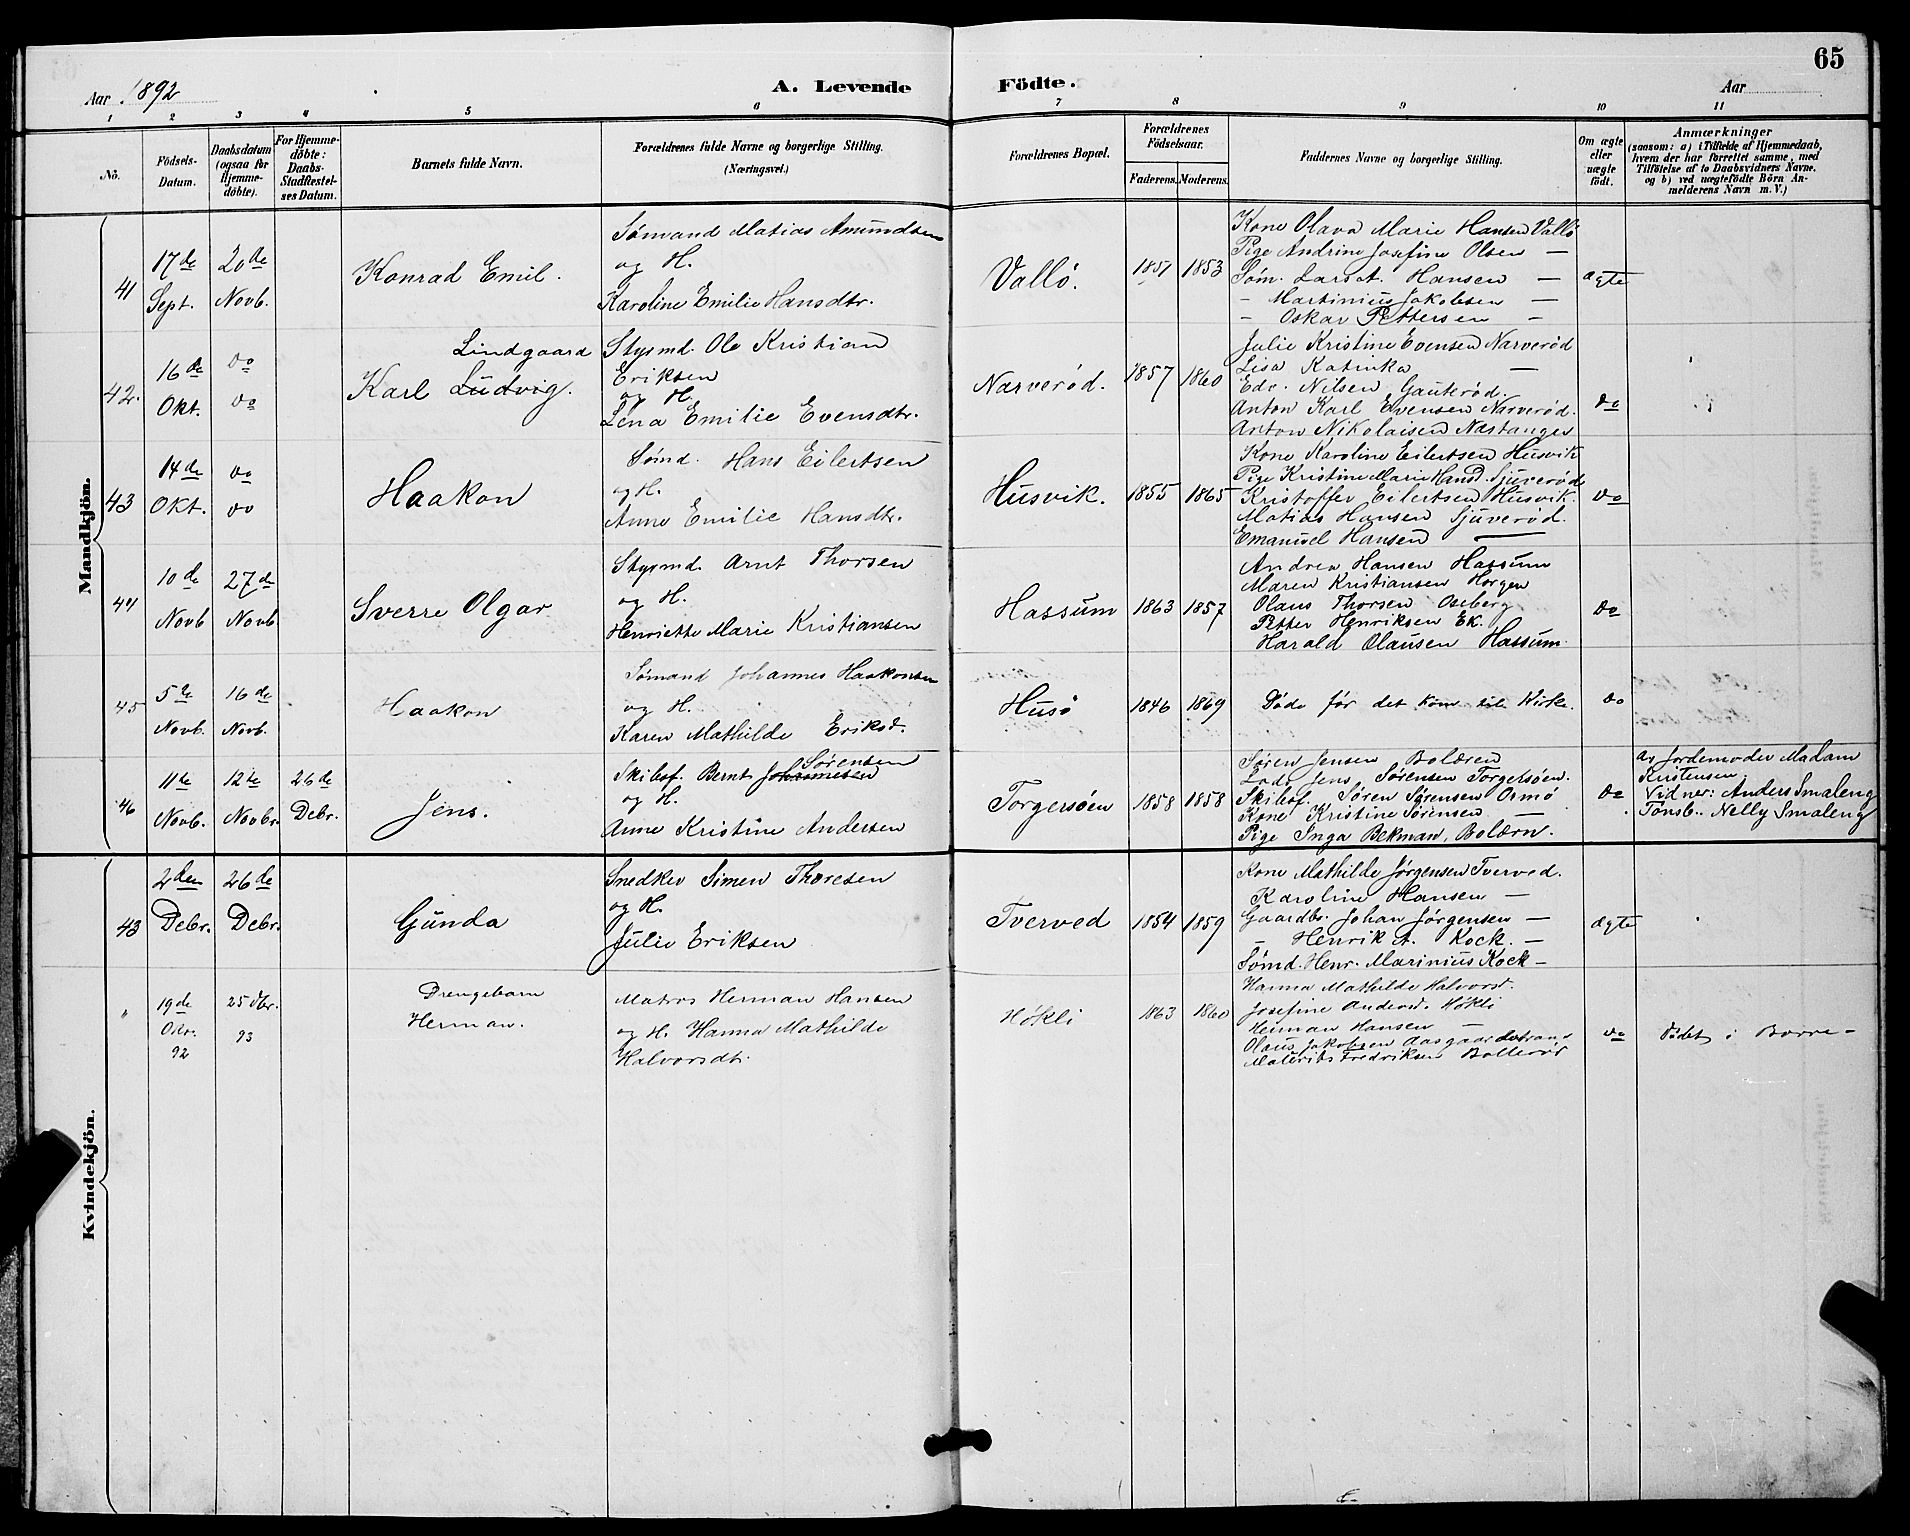 65
Aar 1892
A. Levende
Födte.
Aar
1 2 3 4 5 6 7 8 9 10 11
Nö.
Födsels-Datum.
Daabsdatum (ogsaa for Hjemme-döbte).
For Hjemme-döbte: Daabs-Stadfæstel-ses Datum.
Barnets fulde Navn.
Forældrenes fulde Navne og borgerlige Stilling.
(Næringsvei.)
Forældrenes Bopæl.
Forældrenes Födselsaar.
Faderens. Moderens.
Faddernes Navne og borgerlige Stilling.
Om ægte eller uægte födt.
Anmærkninger
(saasom: a) i Tilfælde af Hjemmedaab,
hvem der har forrettet samme, med
Tilföielse af to Daabsvidners Navne.
og b) ved uægtefödte Börn An-
melderens Navn m. V.)
Mandkjön.
41
17de Sept.
20de Novb.
Konrad Emil.
Sømand Matias Amundsen
og H.
Karoline Emilie Hansdtr.
Vallö.
1851 1853
Kone Olava Marie Hansen Vallö
Pige Andrine Josefine Olsen —
Søm. Lars A. Hansen —
- Martinius Jakobsen —
- Oskar Pettersen -
ægte
42.
16de Okt.
do do
Lindgaard
Karl Ludvig.
Stysmd. Ole Kristian
Eriksen
og H.
Lena Emilie Evensdtr.
Narverød.
1857 1860
Julie Kristine Evensen Narverød
Lisa Katinka —
Edv. Nilsen Gauterød.
Anton Karl Evensen Narverød.
Anton Nikolaisen Næstanger
do
43
14de Okt.
do do
Haakon
Sømd. Hans Eilertsen
og H.
Anne Emilie Hansdtr.
Husvik.
1855 1865
Kone Karoline Eilertsen Husvik
Pige Kristine Marie Hansd. Sjuverød
Kristoffer Eilertsen Husvik.
Matias Hansen Sjuverød.
Emanuel Hansen —
do
44
10de Novb
27de Novb
Sverre Olgar
Stysmd. Arnt Thorsen
og H.
Henriette Marie Kristiansen
Hassum
1863 1857
Andrea Hansen Hassum
Maren Kristiansen Horgen
Olaus Thorsen Oseberg
Petter Henriksen Ek.
Harald Olausen Hassum.
do
45
5te Novb.
16de Novb.
Haakon
Sømand Johannes Haakonsen
og H.
Karen Mathilde Eriksd.
Husö
1846 1869
Døde før det kom til Kirke.
do
46
11te Novb.
12te Novbr.
26de Debr.
Jens.
Sørensen
Skibsf. Bernt Johannesen
og H.
Anne Kristine Andersen
Torgersøen
1858 1858
Søren Jensen Bolæren
Lods Jens Sørensen Torgersøen.
Skibsf. Søren Sørensen Ormö
Kone Kristine Sørensen —
Pige Inga Bekman, Bolærn.
do
av Jordemoder Madam
Kristensen
Vidner: Anders Smaleng
Tønsb.. Nelly Smaleng
Kvindekjön.
43
2den Debr.
26de Debr.
Gunda
Snedker Simen Thoresen
og H.
Julie Eriksen
Tverved
1854 1859
Kone Mathilde Jørgensen Tverved.
Karoline Hansen —
Gaardbr. Johan Jørgensen —
- Henrik A. Kock. —
Sømd. Henr. Marinius Kock —
ægte
19de Okt. 92
25 93
Drengebarn
Herman.
Matros Herman Hansen
og H. Hanna Mathilde
Halvorsdtr.
Høkli
1863 1860
Hanna Mathilde Halvorsd.
Josefine Andersd. Høkli
Herman Hansen —
Olaus Jakobsen Aasgaardstrand
Fredriksen
do
Fødet i Borre -